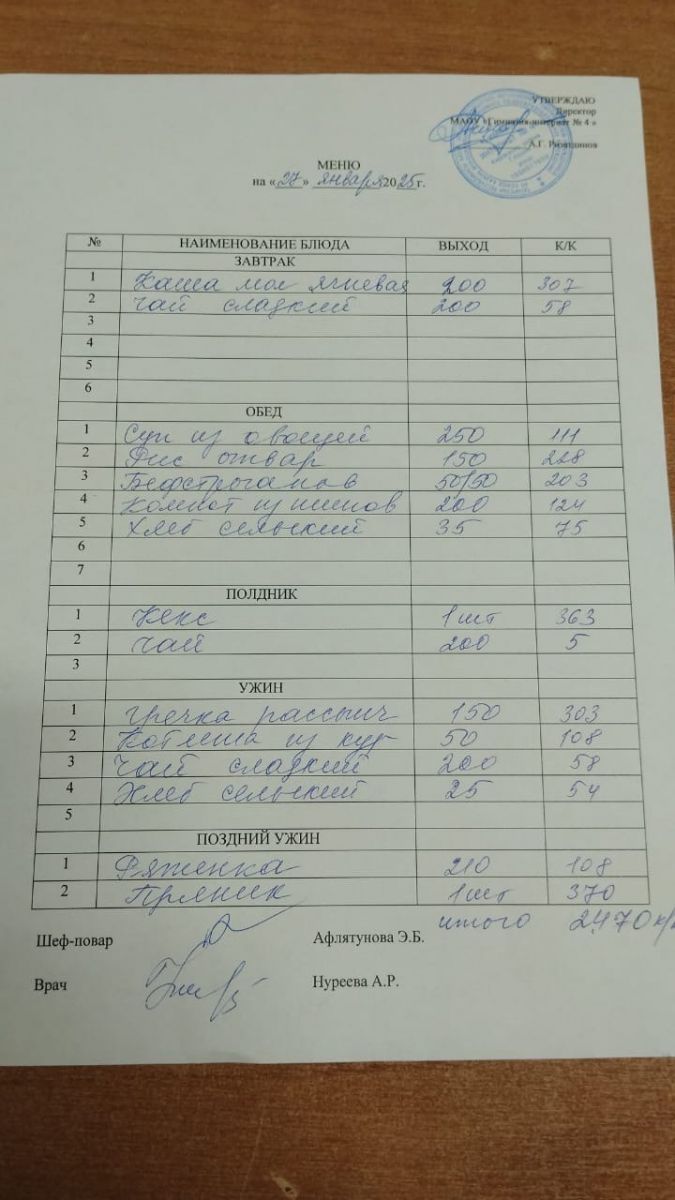 УТВЕРЖДАЮ
Директор
МАОУ «Гимназия-интернат № 4»
А.Г.Ризатдинов
МЕНЮ
на «27» января 2025 г.
№ НАИМЕНОВАНИЕ БЛЮДА ВЫХОД К/К
ЗАВТРАК
1 Каша мол ячневая 200 307
2 Чай сладкий 200 58
3
4
5
6
ОБЕД
1 Суп из овощей 250 111
2 Рис отвар 150 228
3 Бефстроганов 50/50 203
4 Компот из 200 124
5 Хлеб сельский 35 75
6
7
ПОЛДНИК
1 Кекс 1шт 363
2 Чай 200 5
3
УЖИН
1 Гречка рассыпч 150 303
2 Котлета из кур 50 108
3 Чай сладкий 200 58
4 Хлеб сельский 25 54
5
ПОЗДНИЙ УЖИН
1 Ряженка 210 108
2 Пряник 1шт 370
итого 2470
Шеф-повар Афлятунова Э.Б.
Врач Нуреева А.Р.